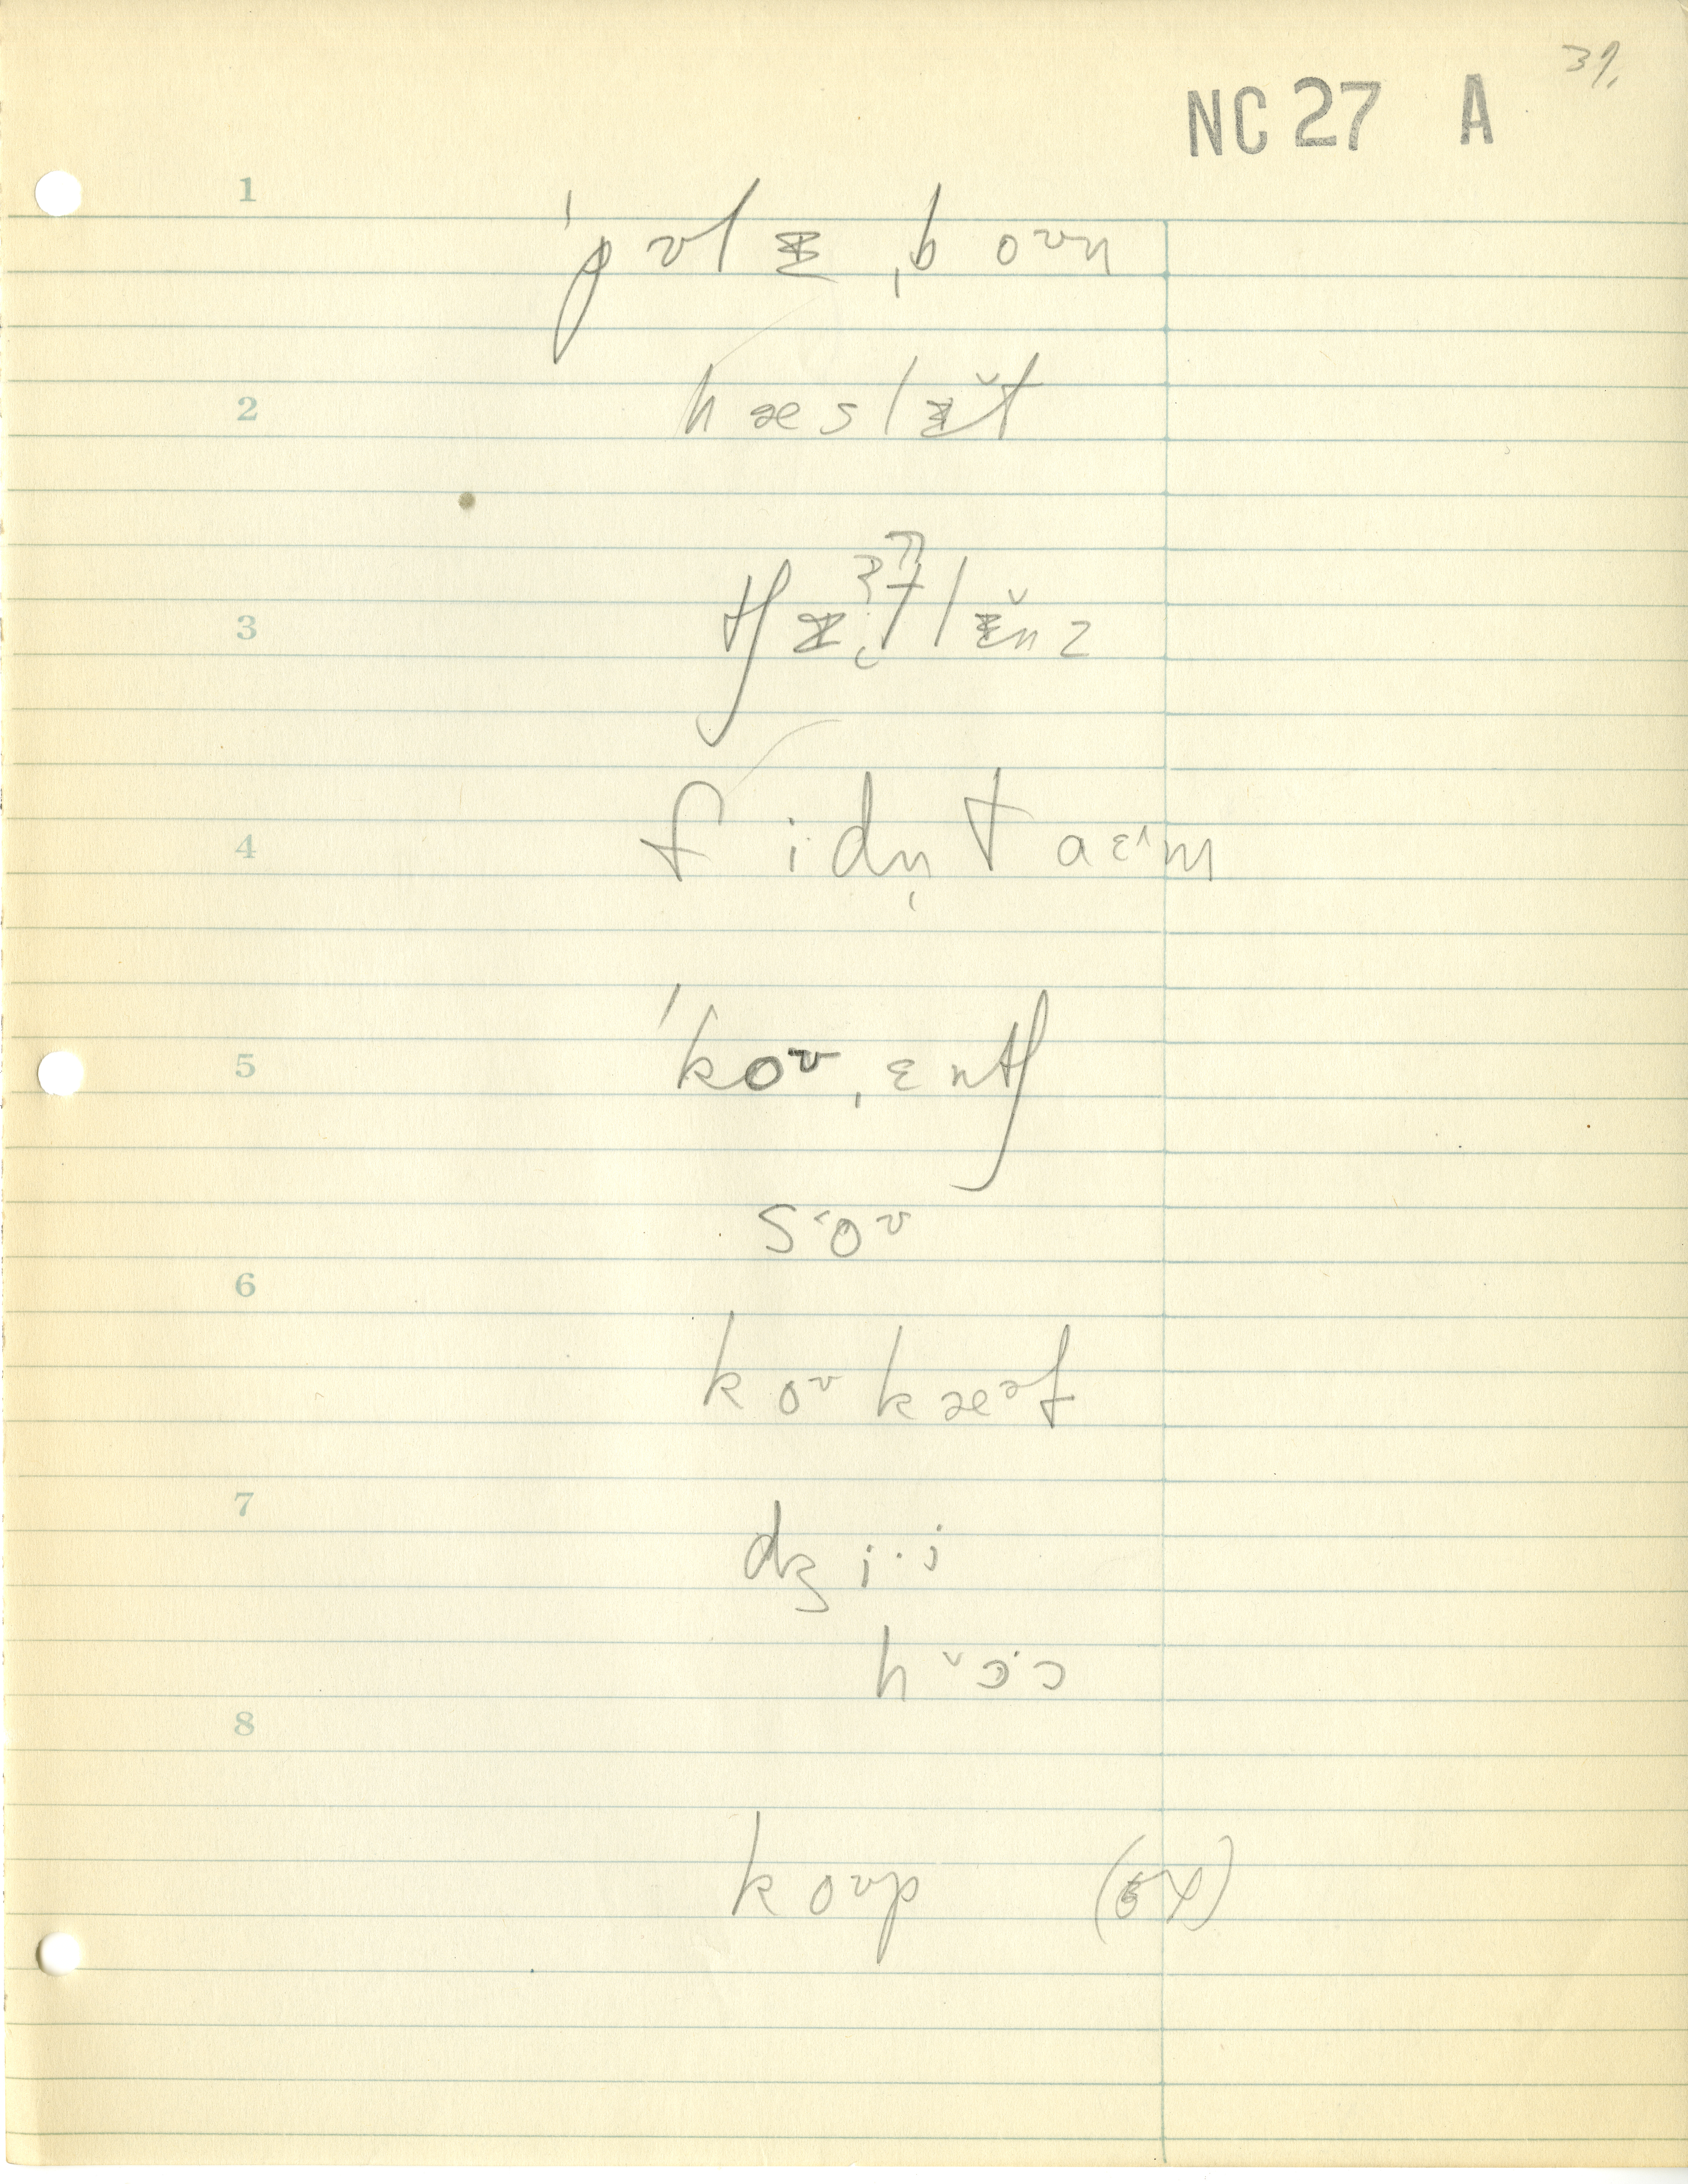 31.
NC 27 A
1
ˈpʊlᵻˌboʊn
2
hæslᵻ̆t
3
tʃᵻtlᵻ̆nz
4
fidn̩taɛˑm
5
ˈkoʊˌɛntʃ
sˑoʊ
6
koʊkæəf
7
dʒiˑi
hˇɔˑɔ
8
koʊp